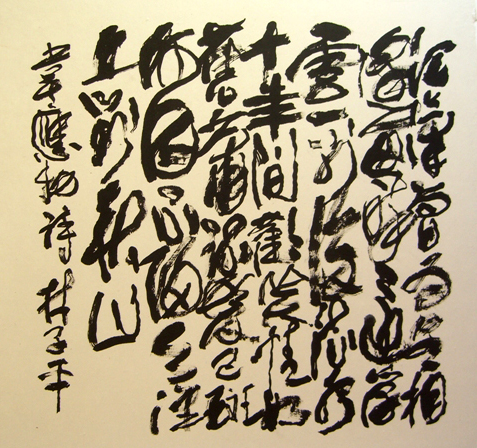 江漢曾為客相
逢每醉還浮
雲一別後流水
十年間歡笑情如
舊蕭疏鬢已斑
何因不歸去淮
上對秋山
韋應物詩 林子平